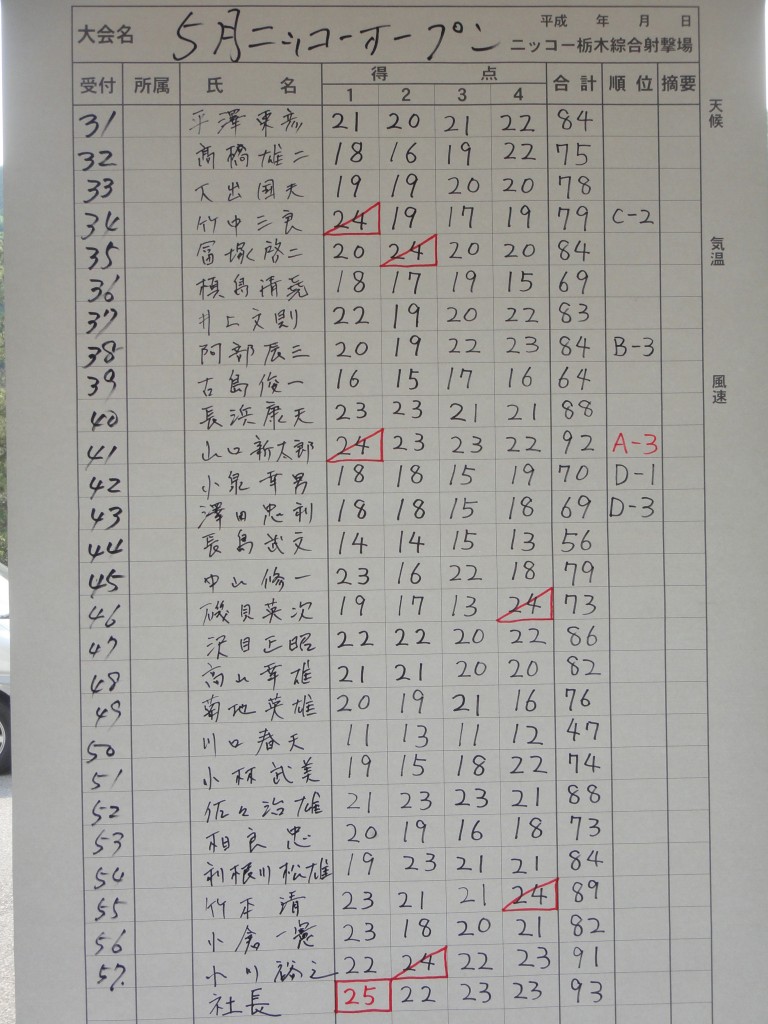 大会名 5月ニッコーオープン 平成 年 月 日
ニッコー栃木綜合射撃場
受付 所属 氏 名 得 点 合計 順位 摘要
1 2 3 4
天候
気温
風速
31 平澤東彦 21 20 21 22 84
32 高橋雄二 18 16 19 22 75
33 大出国夫 19 19 20 20 78
34 竹中三良 24 19 17 19 79 C-2
35 冨塚啓二 20 24 20 20 84
36 槙島清尭 18 17 19 15 69
37 井上文則 22 19 20 22 83
38 阿部辰三 20 19 22 23 84 B-3
39 古島俊一 16 15 17 16 64
40 長浜康夫 23 23 21 21 88
41 山口新太郎 24 23 23 22 92 A-3
42 小泉幸男 18 18 15 19 70 D-1
43 澤田忠利 18 18 15 18 69 D-3
44 長島武文 14 14 15 13 56
45 中山修一 23 16 22 18 79
46 磯貝英次 19 17 13 24 73
47 沢目正昭 22 22 20 22 86
48 高山幸雄 21 21 20 20 82
49 菊地英雄 20 19 21 16 76
50 川口春夫 11 13 11 12 47
51 小林武美 19 15 18 22 74
52 佐々治雄 21 23 23 21 88
53 相良忠 20 19 16 18 73
54 利根川松雄 19 23 21 21 84
55 竹本清 23 21 21 24 89
56 小倉一憲 23 18 20 21 82
57. 小川裕之 22 24 22 23 91
社長 25 22 23 23 93